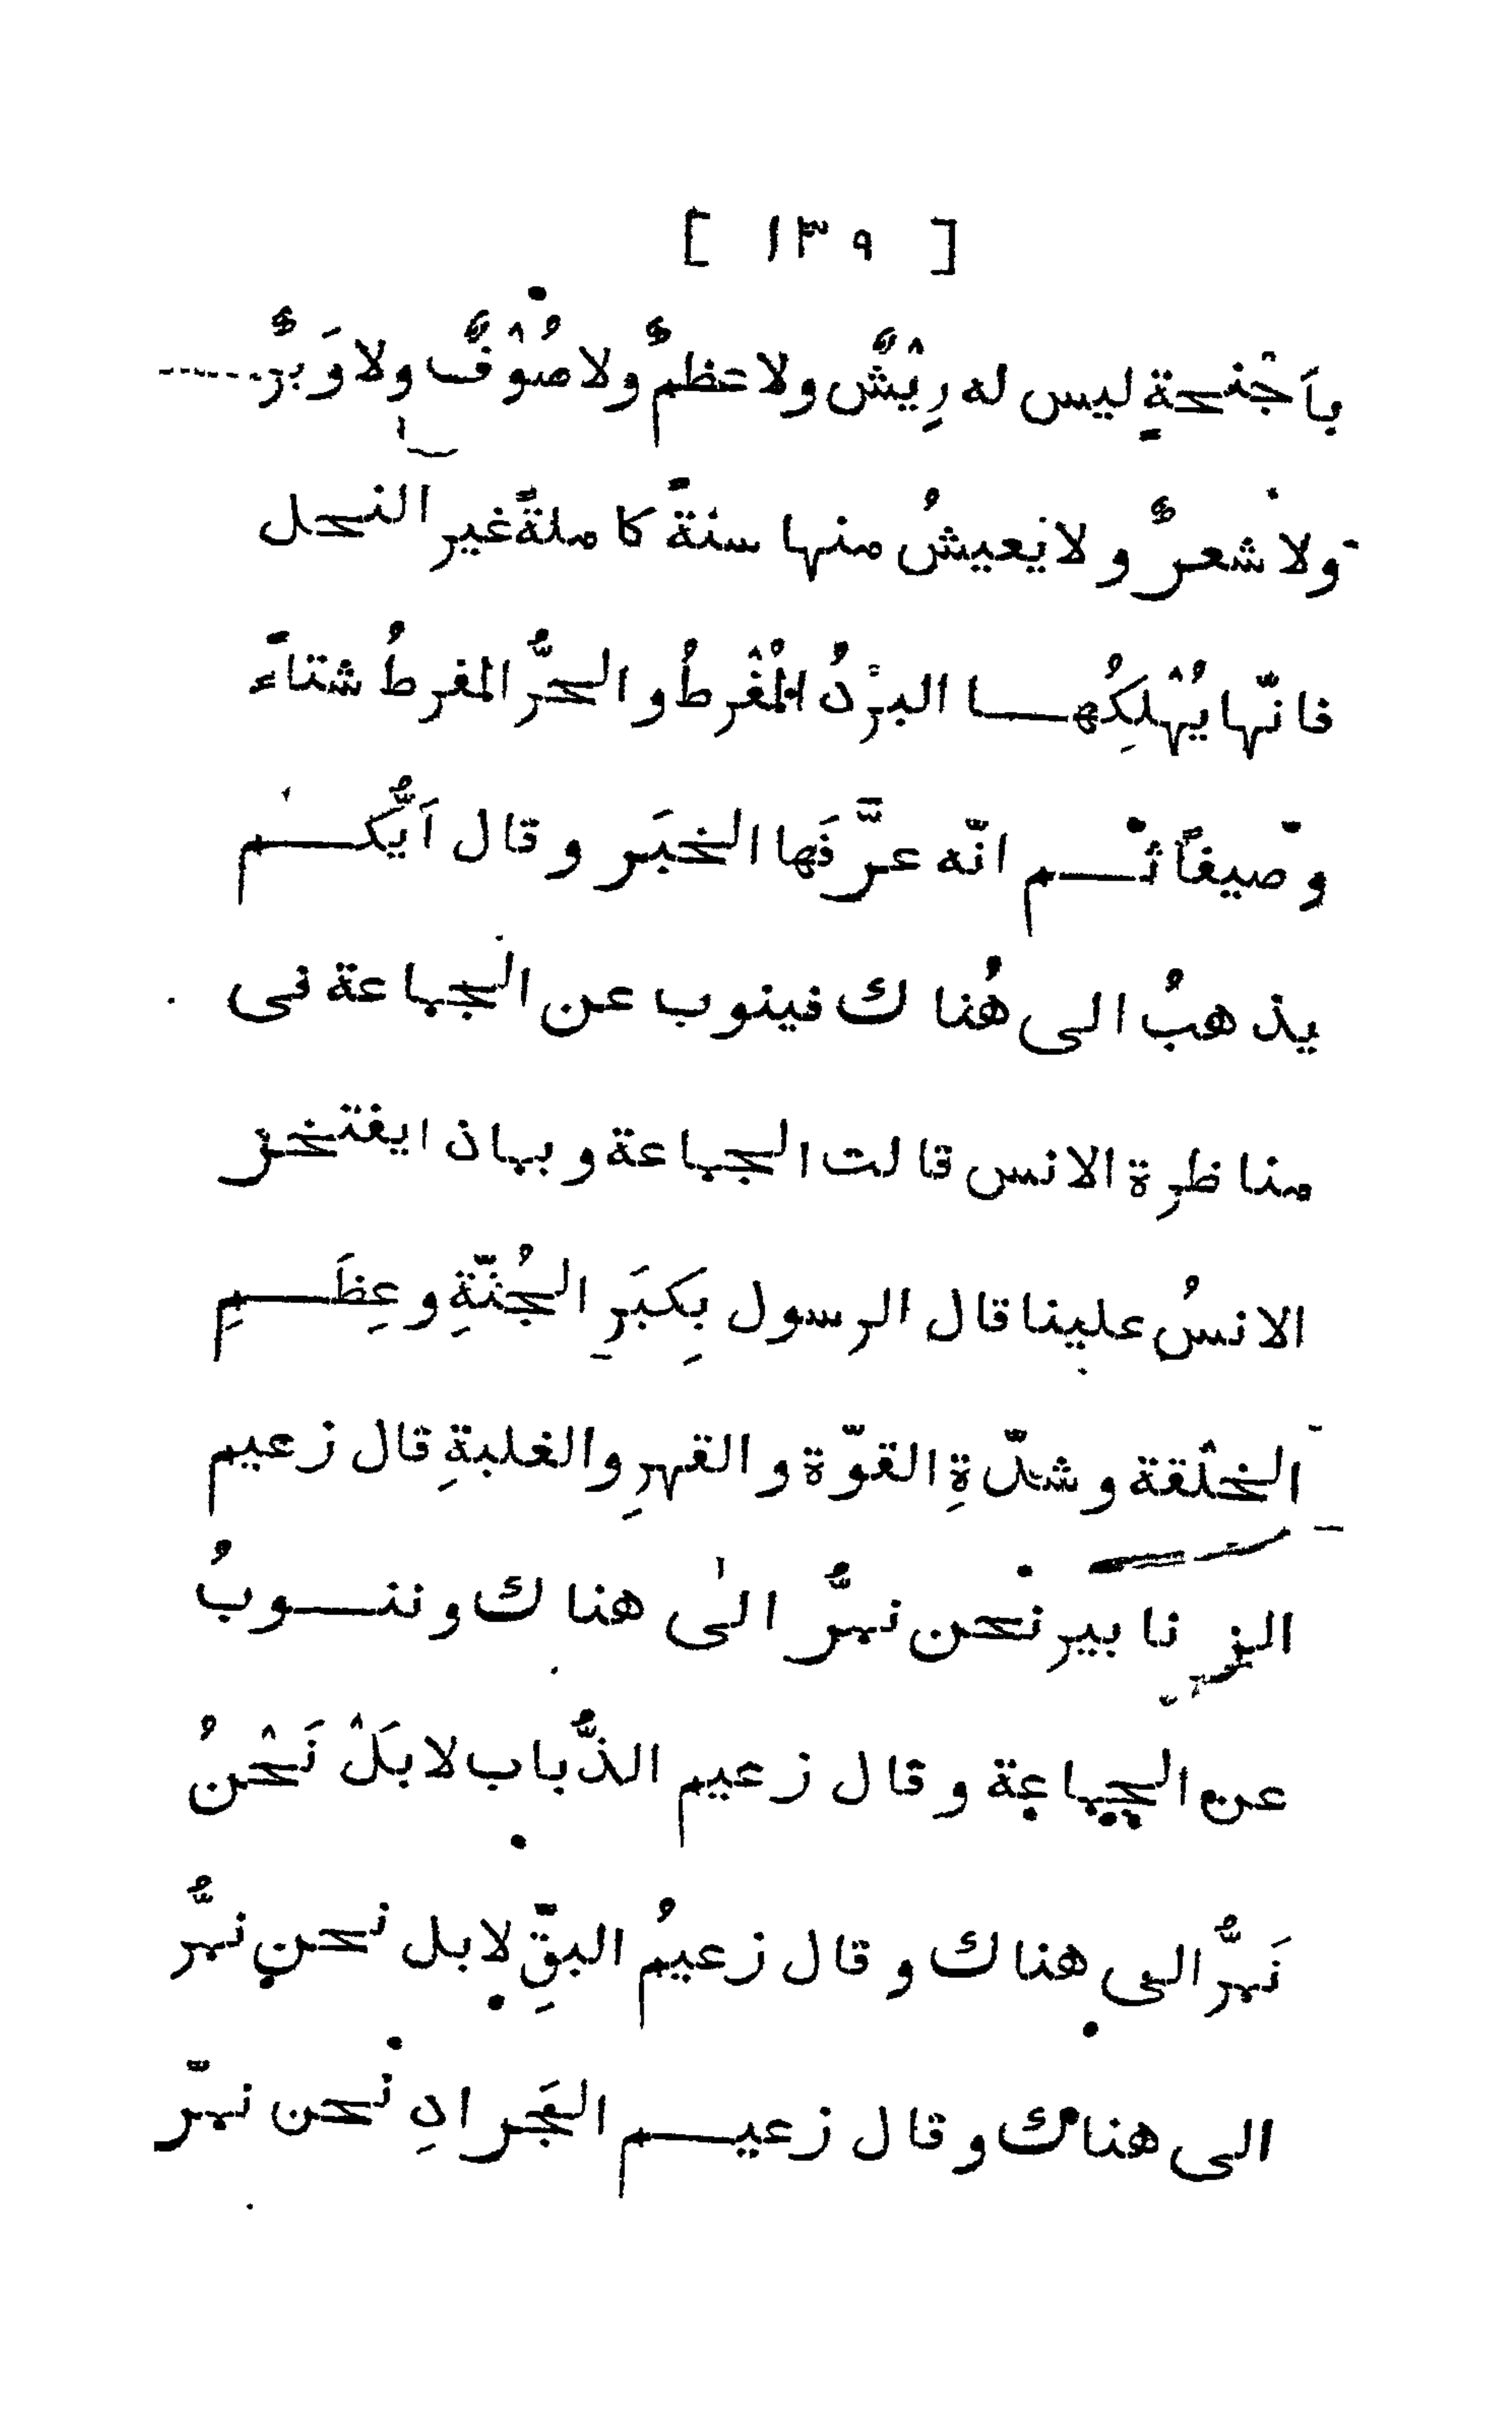 [ ١٣٩ ]
بأَجْنحةٍ ليس له رِيْشٌ ولا عظمٌ ولا صُوْفٌ ولا وَبرٌ
ولا شعرٌ ولا يعيشُ منها سنةً كاملةً غير النحل
فانّها يُهْلِكُها البرْدُ المُفْرطُ والحرُّ المفرطُ شتاءً
وصيفاً ثم انّه عرَّفَها الخبَر وقال اَيُّكم
يذهبُ الى هُناك فينوب عن الجماعة فى
مناظرة الانس قالت الجماعة وبماذا يفتخر
الانسُ علينا قال الرسول بِكبَرِ الجُثّةِ وعِظَمِ
الخلْقة وشدّةِ القوّة والقهرِ والغلبةِ قال زعيم
الزنابير نحن نمرُّ الىٰ هناك وننوبُ
عن الجماعة وقال زعيم الذُّباب لا بَلْ نَحْنُ
نَمرُّ الى هناك وقال زعيمُ البقِّ لا بل نحن نمرُّ
الى هناك وقال زعيم الجَرادِ نحن نمرّ